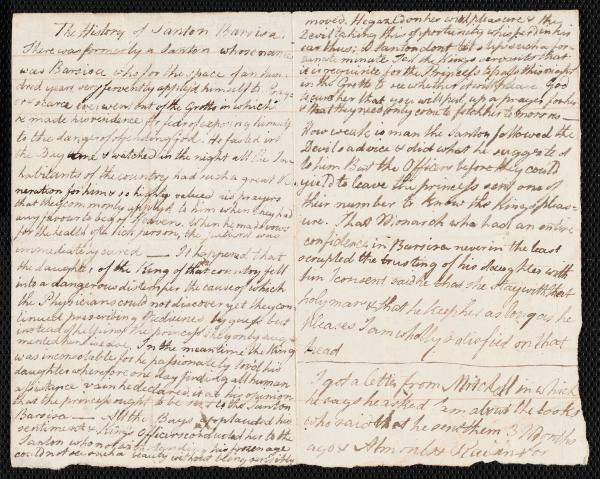 The History of Santon Barsisa.
There was formerly a Santon whose name
was Barsisa who for the space of an hun
dred years very fervently applyd himself to Prayer
& scarce ever went out of the Grotto in which
he made his residence for fear of exposing himself
to the danger of offending God. He fasted in
the Day time & watched in the night all the In
habitants of the country had such a great Ve
neration for him & so highly valued his prayers
that they commonly applyd to him when they had
any favour to beg of Heaven. When he made vows
for the health of a sick person, the patient was
immediately cured — It happened That
the daughter of the King of that country fell
into a dangerous distemper the cause of which
the Physicians could not discover yet they con
tinued prescribing Remedies by guess but
instead of helping the princess they only aug
mented her disease. In the mean time the King
was inconsolable for he passionately lov'd his
daughter wherefore one day finding all human
assistance vain he declared it as his opinion
that the princess ought to be sent to the Santon
Barsisa — All the Beys applauded his
sentiment & the King's Officers conducted her to the
Santon who notwithstanding his frozen age
could not see such a beauty without being sensibly
moved. He gazed on her with pleasure & the
Devil taking this opportunity whisperd in his
ear thus; O Santon dont let slip such a for
tunate minute Tell the King's servants that
it is requisite for the Princess to pass this night
in the Grotto to see whether it will please God
to cure her that you will put up a prayer for her
& that they need only come to fetch her tomorrow —
How weak is man the Santon followed the
Devil's advice & did what he suggested
to him But the Officers before they would
yield to leave the princess sent one of
their number to know the King's pleas-
ure. That Monarch who had an entire
confidence in Barsisa never in the least
scrupled the trusting of his daughter with
him I consent said he that she stay with that
holy man & that he keep her as long as he
pleases I am wholly satisfied on that
head
I got a letter from Mitchell in which
he says he asked about the books
who said that he sent them 3 Months
ago &